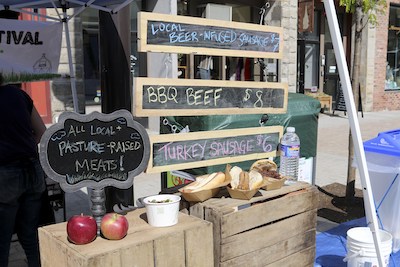 TIVAL
LOCAL
BEER-INFUSED SAUSAGE $7
BBQ BEEF $8
TURKEY SAUSAGE $6
ALL LOCAL +
PASTURE-RAISED
MEATS!